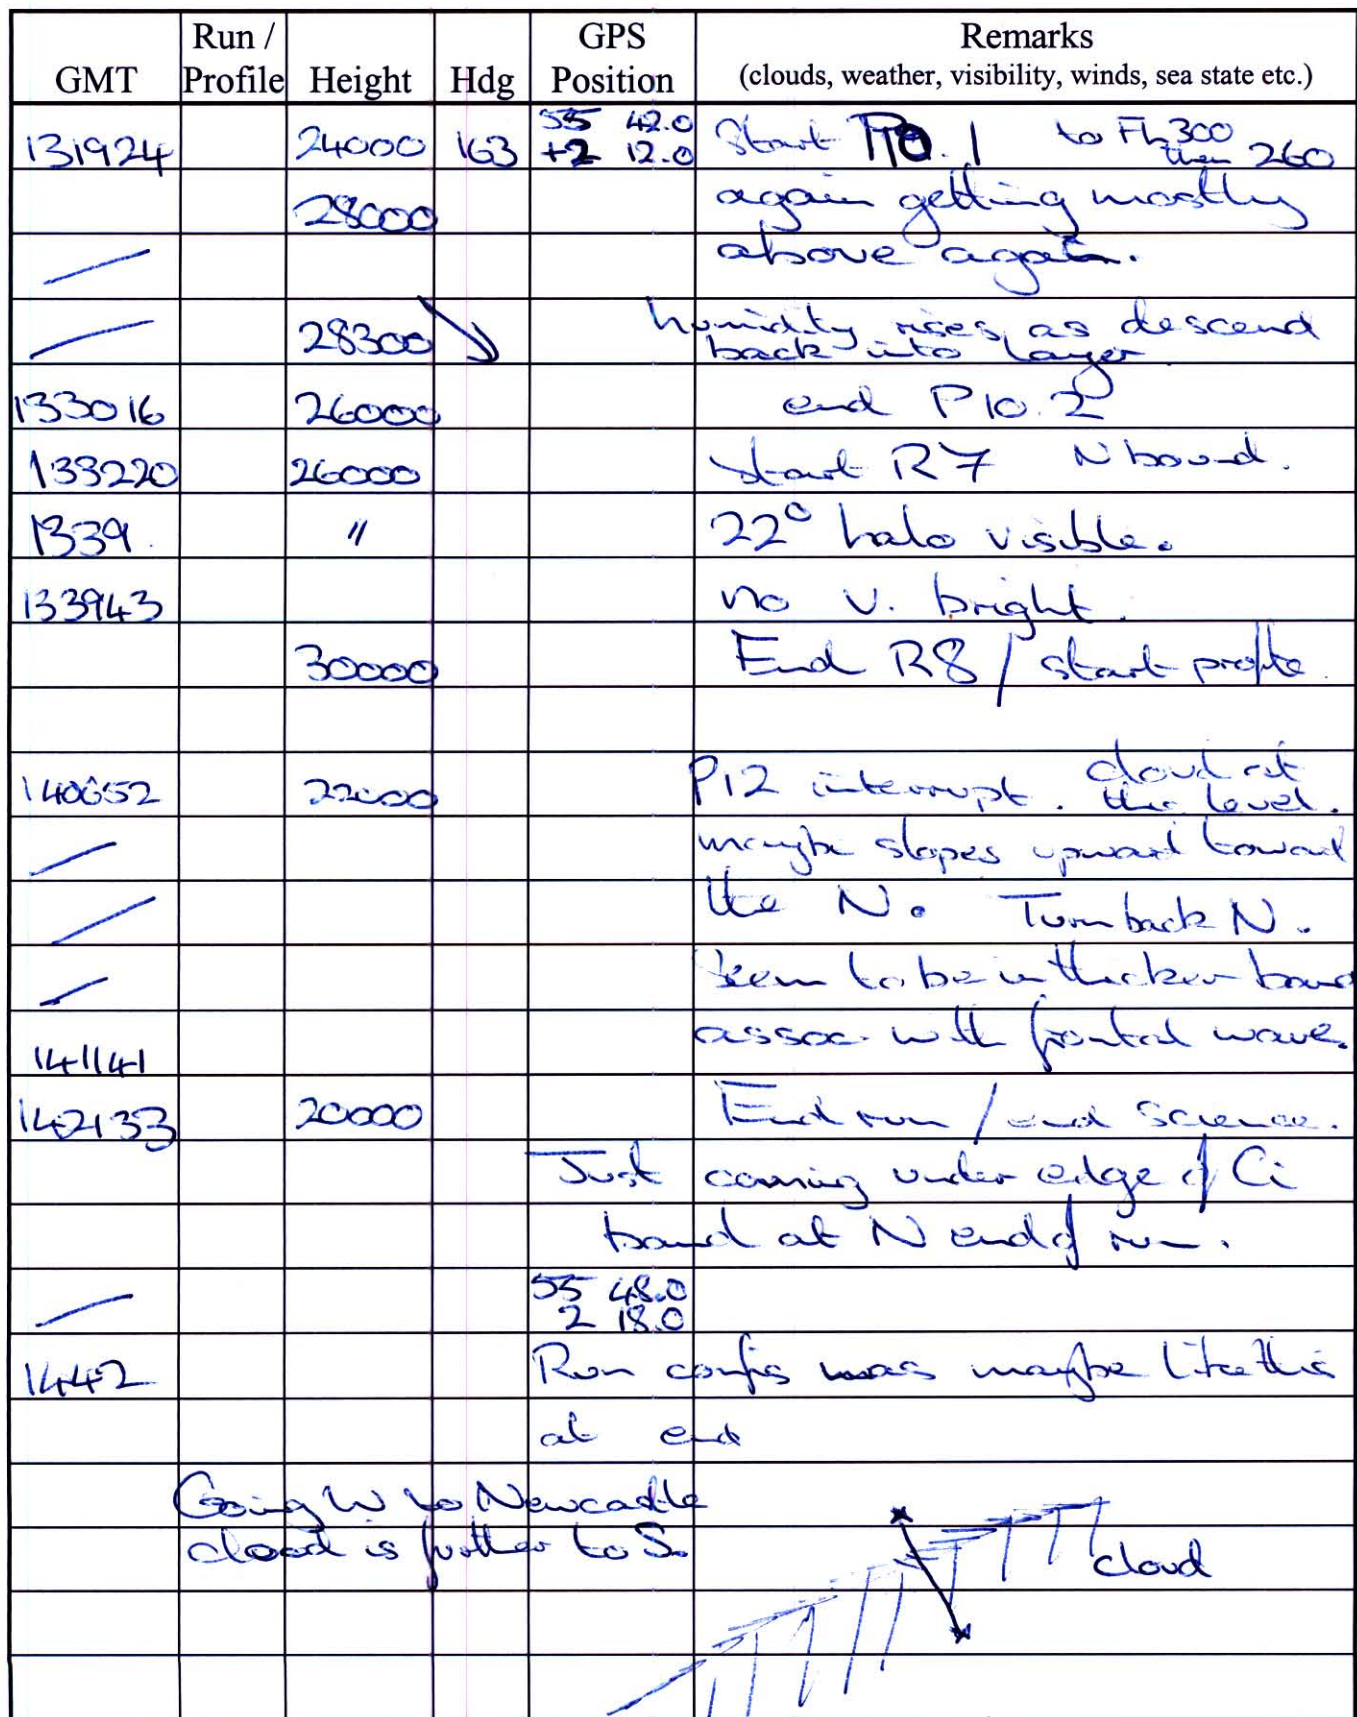 GMT Run / Profile Height Hdg GPS Position Remarks (clouds, weather, visibility, winds, sea state etc.)
131924 24000 163 55 42.0 +2 12.0 Start P10.1 to FL300 then 260
28000 again getting mostly
above again.
28300 humidity rises as descend back into layer
133016 26000 end P10.2
133220 26000 start R7 N bound.
1339. " 22° halo visible.
133943 no v. bright.
30000 End R8 / start profile.
140652 22000 P12 interrupt. cloud at this level.
maybe slopes upward toward
the N. Turn back N.
Seem to be in thicker band
141141 assoc. with frontal wave.
142133 20000 End run / end science.
Just coming under edge of Ci
band at N end of run.
55 48.0 2 18.0
1442 Run config was maybe like this
at end
Going W to Newcastle
cloud is further to S.
cloud